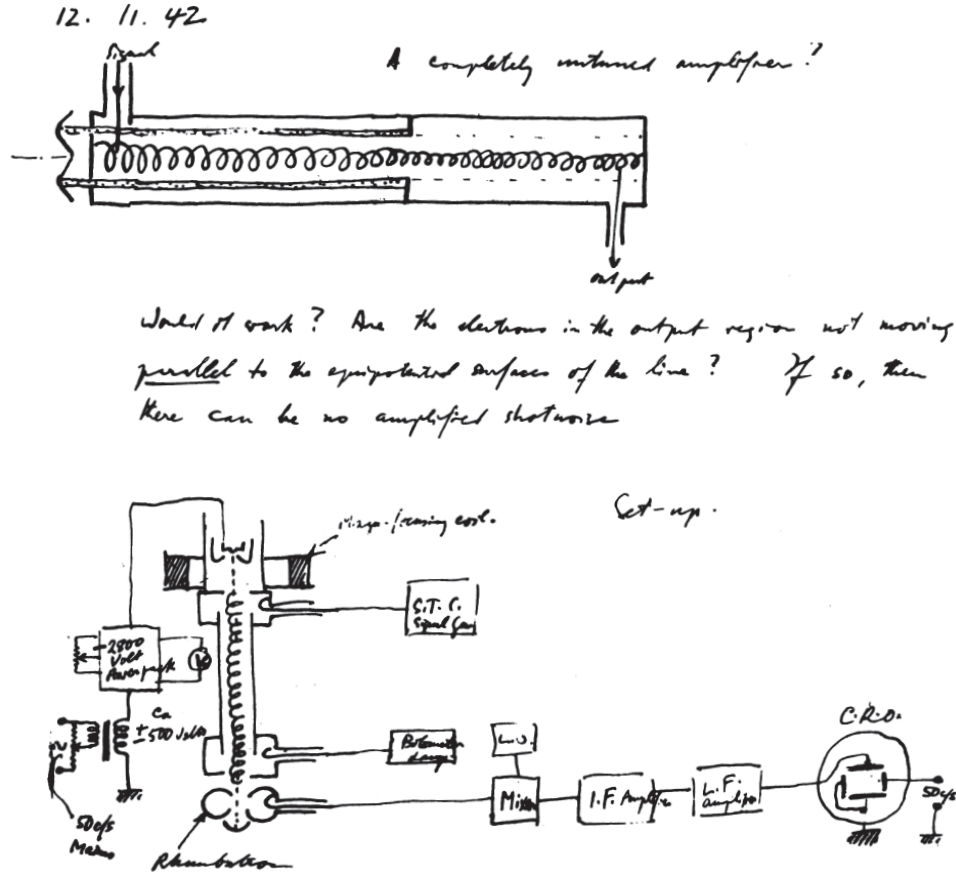 12. 11. 42
Signal
A completely untuned amplifier?
output
Would it work? Are the electrons in the output region not moving
parallel to the equipotential surfaces of the line? If so, then
there can be no amplified shotnoise
Set-up.
Magn. focusing coil.
S.T.C.
Signal Gen
-2800
Volt
Power pack
Ca
± 500 Volts
50 c/s
Mains
Bolometer
Lamp
Rhumbatron
L.O.
Mixer
I.F. Amplifier
L.F.
amplifier
C.R.O.
50 c/s